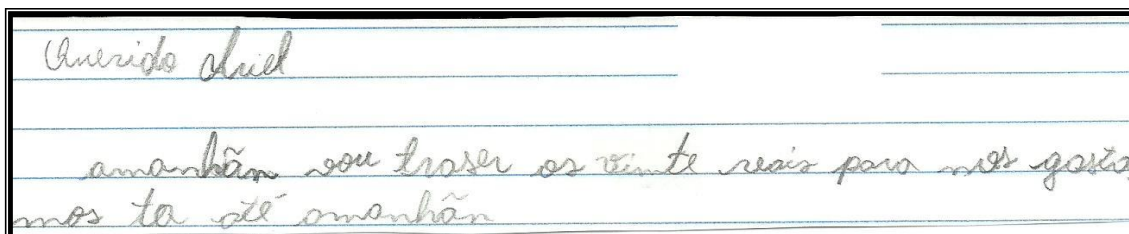 Querido Ariel
amanhãn vou traser os vimte reais para nos gasta
mos ta até amanhãn